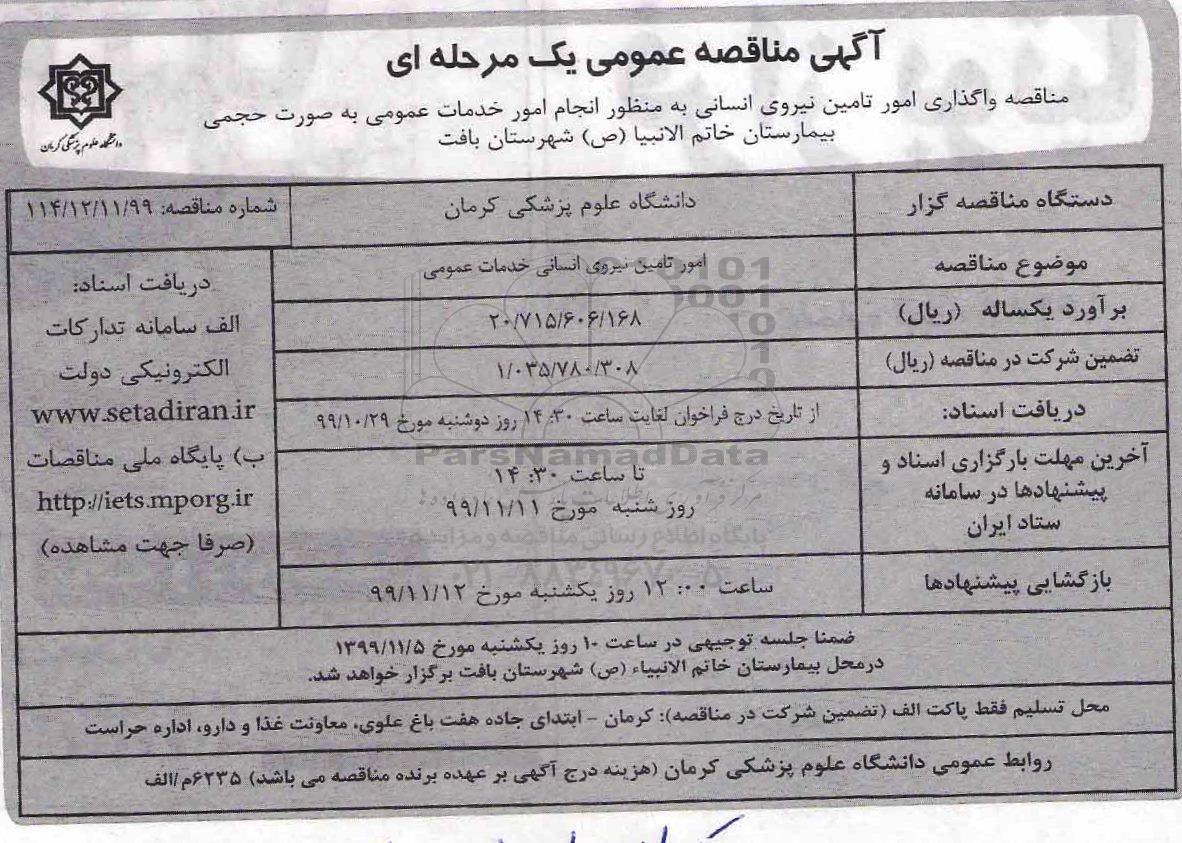 آگهی مناقصه عمومی یک مرحله ای
مناقصه واگذاری امور تامین نیروی انسانی به منظور انجام امور خدمات عمومی به صورت حجمی
بیمارستان خاتم الانبیا (ص) شهرستان بافت
دانشگاه علوم پزشکی کرمان
دستگاه مناقصه گزار
دانشگاه علوم پزشکی کرمان
شماره مناقصه: ۱۱۴/۱۲/۱۱/۹۹
موضوع مناقصه
امور تامین نیروی انسانی خدمات عمومی
برآورد یکساله (ریال)
۲۰/۷۱۵/۶۰۶/۱۶۸
تضمین شرکت در مناقصه (ریال)
۱/۰۳۵/۷۸۰/۳۰۸
دریافت اسناد:
از تاریخ درج فراخوان لغایت ساعت ۱۴:۳۰ روز دوشنبه مورخ ۹۹/۱۰/۲۹
آخرین مهلت بارگزاری اسناد و
پیشنهادها در سامانه
ستاد ایران
تا ساعت ۱۴:۳۰
روز شنبه مورخ ۹۹/۱۱/۱۱
بازگشایی پیشنهادها
ساعت ۱۲:۰۰ روز یکشنبه مورخ ۹۹/۱۱/۱۲
دریافت اسناد:
الف سامانه تدارکات
الکترونیکی دولت
www.setadiran.ir
ب) پایگاه ملی مناقصات
http://iets.mporg.ir
(صرفا جهت مشاهده)
ضمنا جلسه توجیهی در ساعت ۱۰ روز یکشنبه مورخ ۱۳۹۹/۱۱/۵
درمحل بیمارستان خاتم الانبیاء (ص) شهرستان بافت برگزار خواهد شد.
محل تسلیم فقط پاکت الف (تضمین شرکت در مناقصه): کرمان – ابتدای جاده هفت باغ علوی، معاونت غذا و دارو، اداره حراست
روابط عمومی دانشگاه علوم پزشکی کرمان (هزینه درج آگهی بر عهده برنده مناقصه می باشد) ۶۲۳۵م/الف
ParsNamadData
پایگاه اطلاع رسانی مناقصه و مزایده
۰۲۱-۸۸۳۴۹۶۷۰-۵